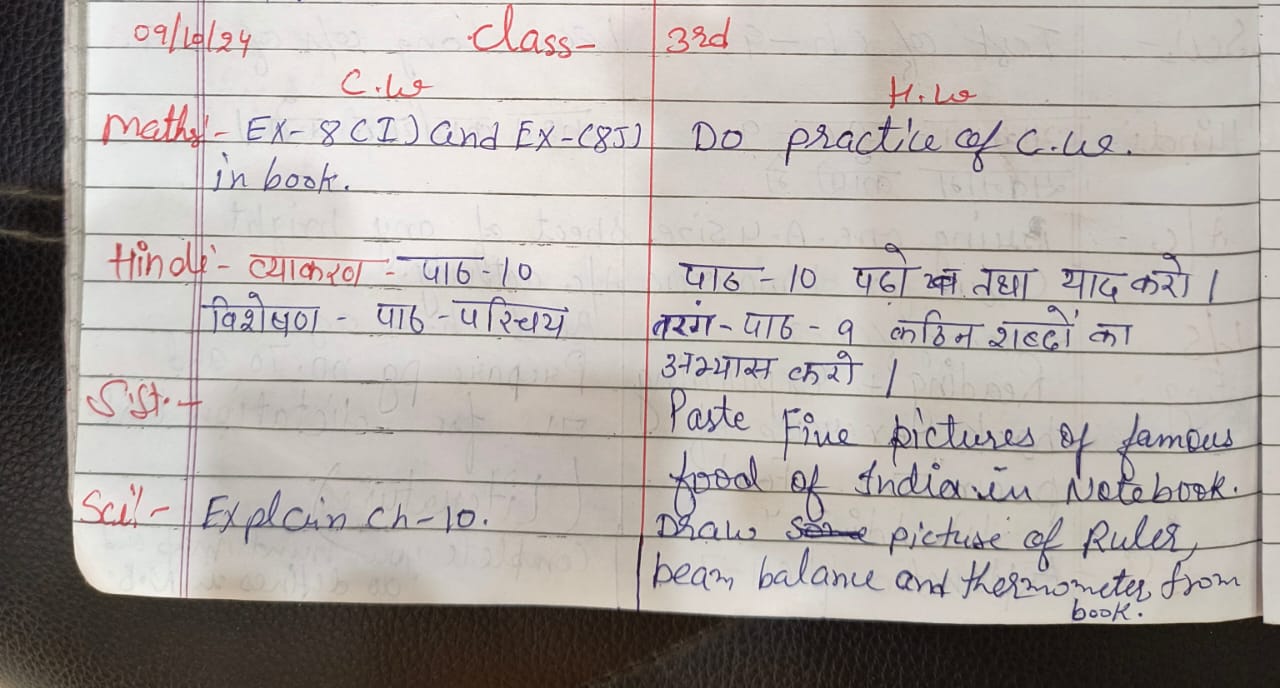 09/10/24 Class- 3rd
C.W H.W
Maths:- EX-8(I) and EX-(8J) Do practice of C.W.
in book.
Hindi:- व्याकरण - पाठ-10 पाठ-10 पढो तथा याद करो।
विशेषण - पाठ-परिचय तरंग-पाठ-9 कठिन शब्दों का
अभ्यास करो।
S.st.-
Paste Five pictures of famous
food of India in Notebook.
Sci:- Explain ch-10. Draw some picture of Ruler,
beam balance and thermometer from
book.